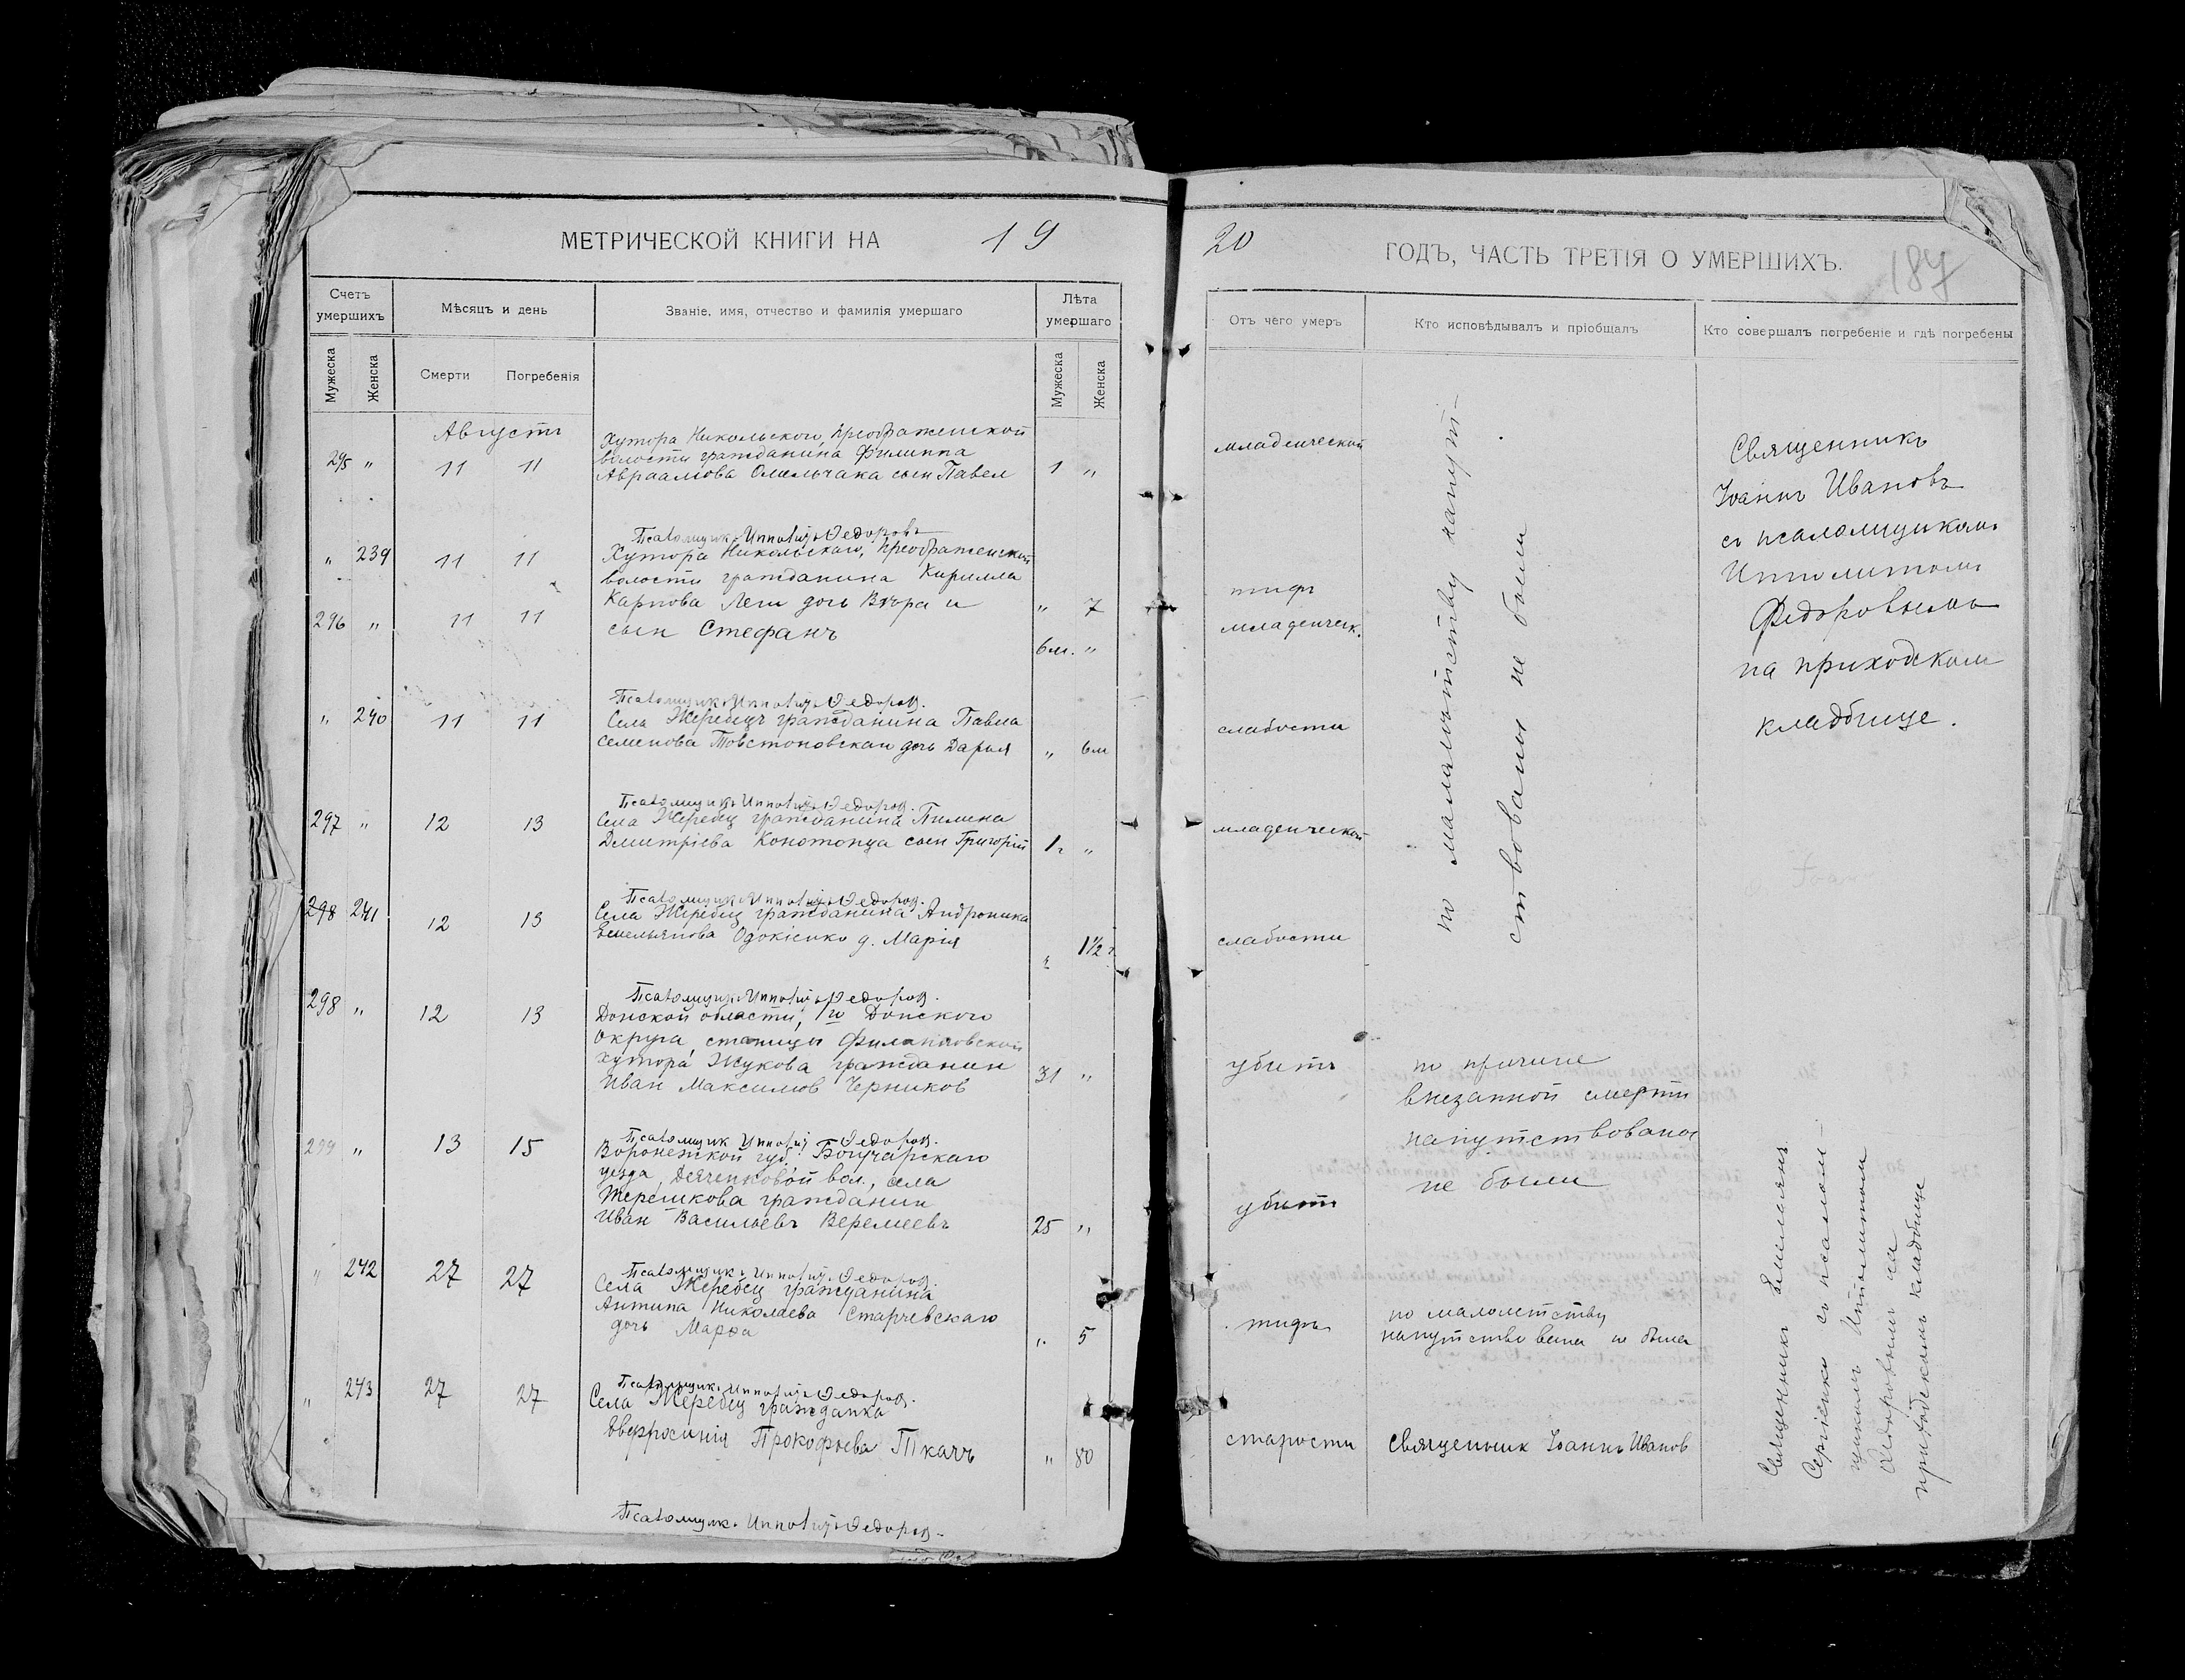 МЕТРИЧЕСКОЙ КНИГИ НА 19
Счетъ умершихъ
Мѣсяцъ и день
Званіе, имя, отчество и фамилія умершаго
Лѣта умершаго
Мужеска
Женска
Смерти
Погребенія
Мужеска
Женска
Августъ
295 " 11 11 Хутора Никольского, Преображенской
волости гражданина Филиппа
Авраамова Омельчака сын Павел 1 "
Псаломщикъ Ипполитъ Федоровъ
" 239 11 11 Хутора Никольскаго, Преображенской
волости гражданина Кирилла
Карпова Леги дочь Вѣра и " 7
296 " 11 11 сын Стефанъ 6 м. "
Псаломщикъ Ипполитъ Федоров.
" 240 11 11 Села Жеребецъ гражданина Павла
Семенова Товстоновскаи дочь Дарья " 6 м
Псаломщикъ Ипполитъ Федоров.
297 " 12 13 Села Жеребец гражданина Пимена
Дмитріева Конотопца сын Григорій 1 г "
Псаломщикъ Ипполитъ Федоров.
298 241 12 13 Села Жеребец гражданина Андроника
Емельянова Одокіенко д. Марія " 1½ г
Псаломщикъ Ипполитъ Федоров.
298 " 12 13 Донской области, 1го Донского
округа, станицы
хутора Жукова гражданин
Иван Максимов Черников 31 "
Псаломщик Ипполит Федоров.
299 " 13 15 Воронежской губ. Богучарскаго
уезда, Дьяченковой вол., села
Терешкова гражданин
Иван Васильевъ Веремеевъ 25 "
Псаломщикъ Ипполитъ Федоров.
" 242 27 27 Села Жеребец гражданина
Антипа Николаева Старчевскаго
дочь Марфа " 5
Псаломщикъ Ипполитъ Федоров.
" 243 27 27 Села Жеребец гражданка
Евфросинія Прокофьева Ткачъ " 80
Псаломщик. Ипполитъ Федоров.
20 ГОДЪ, ЧАСТЬ ТРЕТІЯ О УМЕРШИХЪ.
187
Отъ чего умеръ
Кто исповѣдывалъ и пріобщалъ
Кто совершалъ погребеніе и гдѣ погребены
младенческой
тифъ
младенческ.
слабости
младенческой
слабости
убитъ
убит
тифъ
старости
по малолѣтству напут-
ствованы не были
по причине
внезапной смерти
напутствованы
не были
по малолетству
напутствована не была
Священник Іоаннъ Иванов
Священникъ
Іоаннъ Ивановъ
съ псаломщикомъ
Ипполитомъ
Федоровымъ
на приходском
кладбище.
Священникъ Емельянъ
Сергіенко съ псалом-
щикомъ Ипполитом
Федоровым на
приходскомъ кладбище